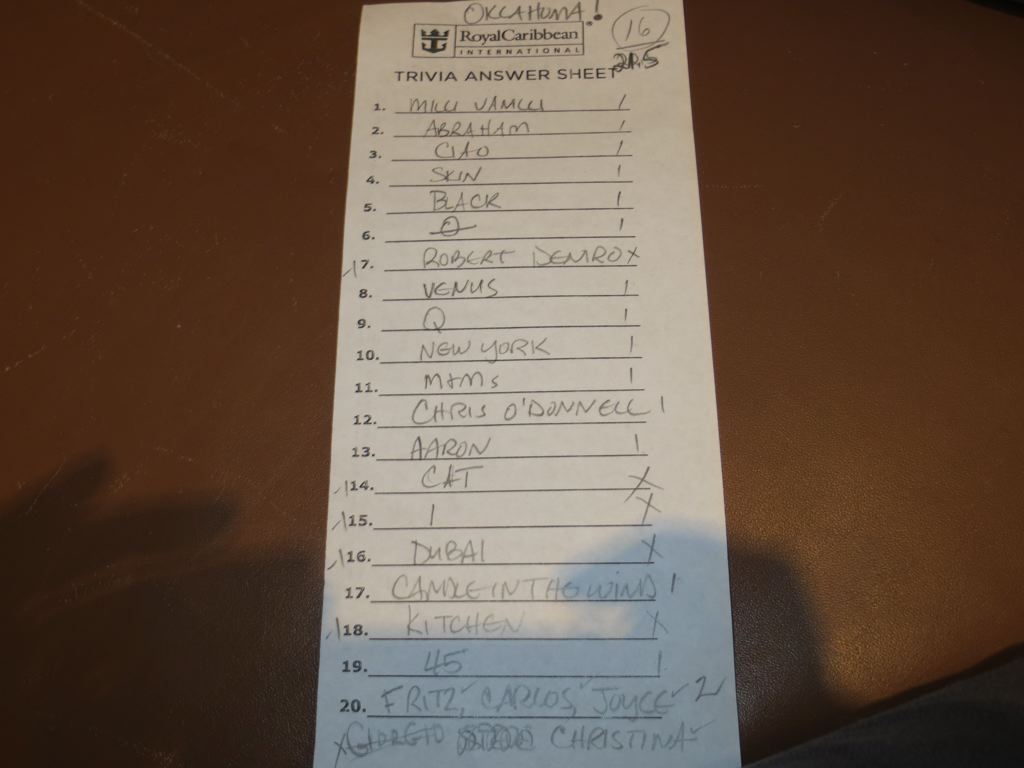 OKLAHOMA!
RoyalCaribbean ® 16
INTERNATIONAL
TRIVIA ANSWER SHEET 21.5
1. MILLI VANILLI 1
2. ABRAHAM 1
3. CIAO 1
4. SKIN 1
5. BLACK 1
6. O 1
17. ROBERT DENIRO X
8. VENUS 1
9. Q 1
10. NEW YORK 1
11. M+Ms 1
12. CHRIS O'DONNELL 1
13. AARON 1
14. CAT X
15. 1 X
16. DUBAI X
17. CANDLE IN THE WIND 1
18. KITCHEN X
19. 45 1
20. FRITZ, CARLOS, JOYCE 2
X GIORGIO CHRISTINA